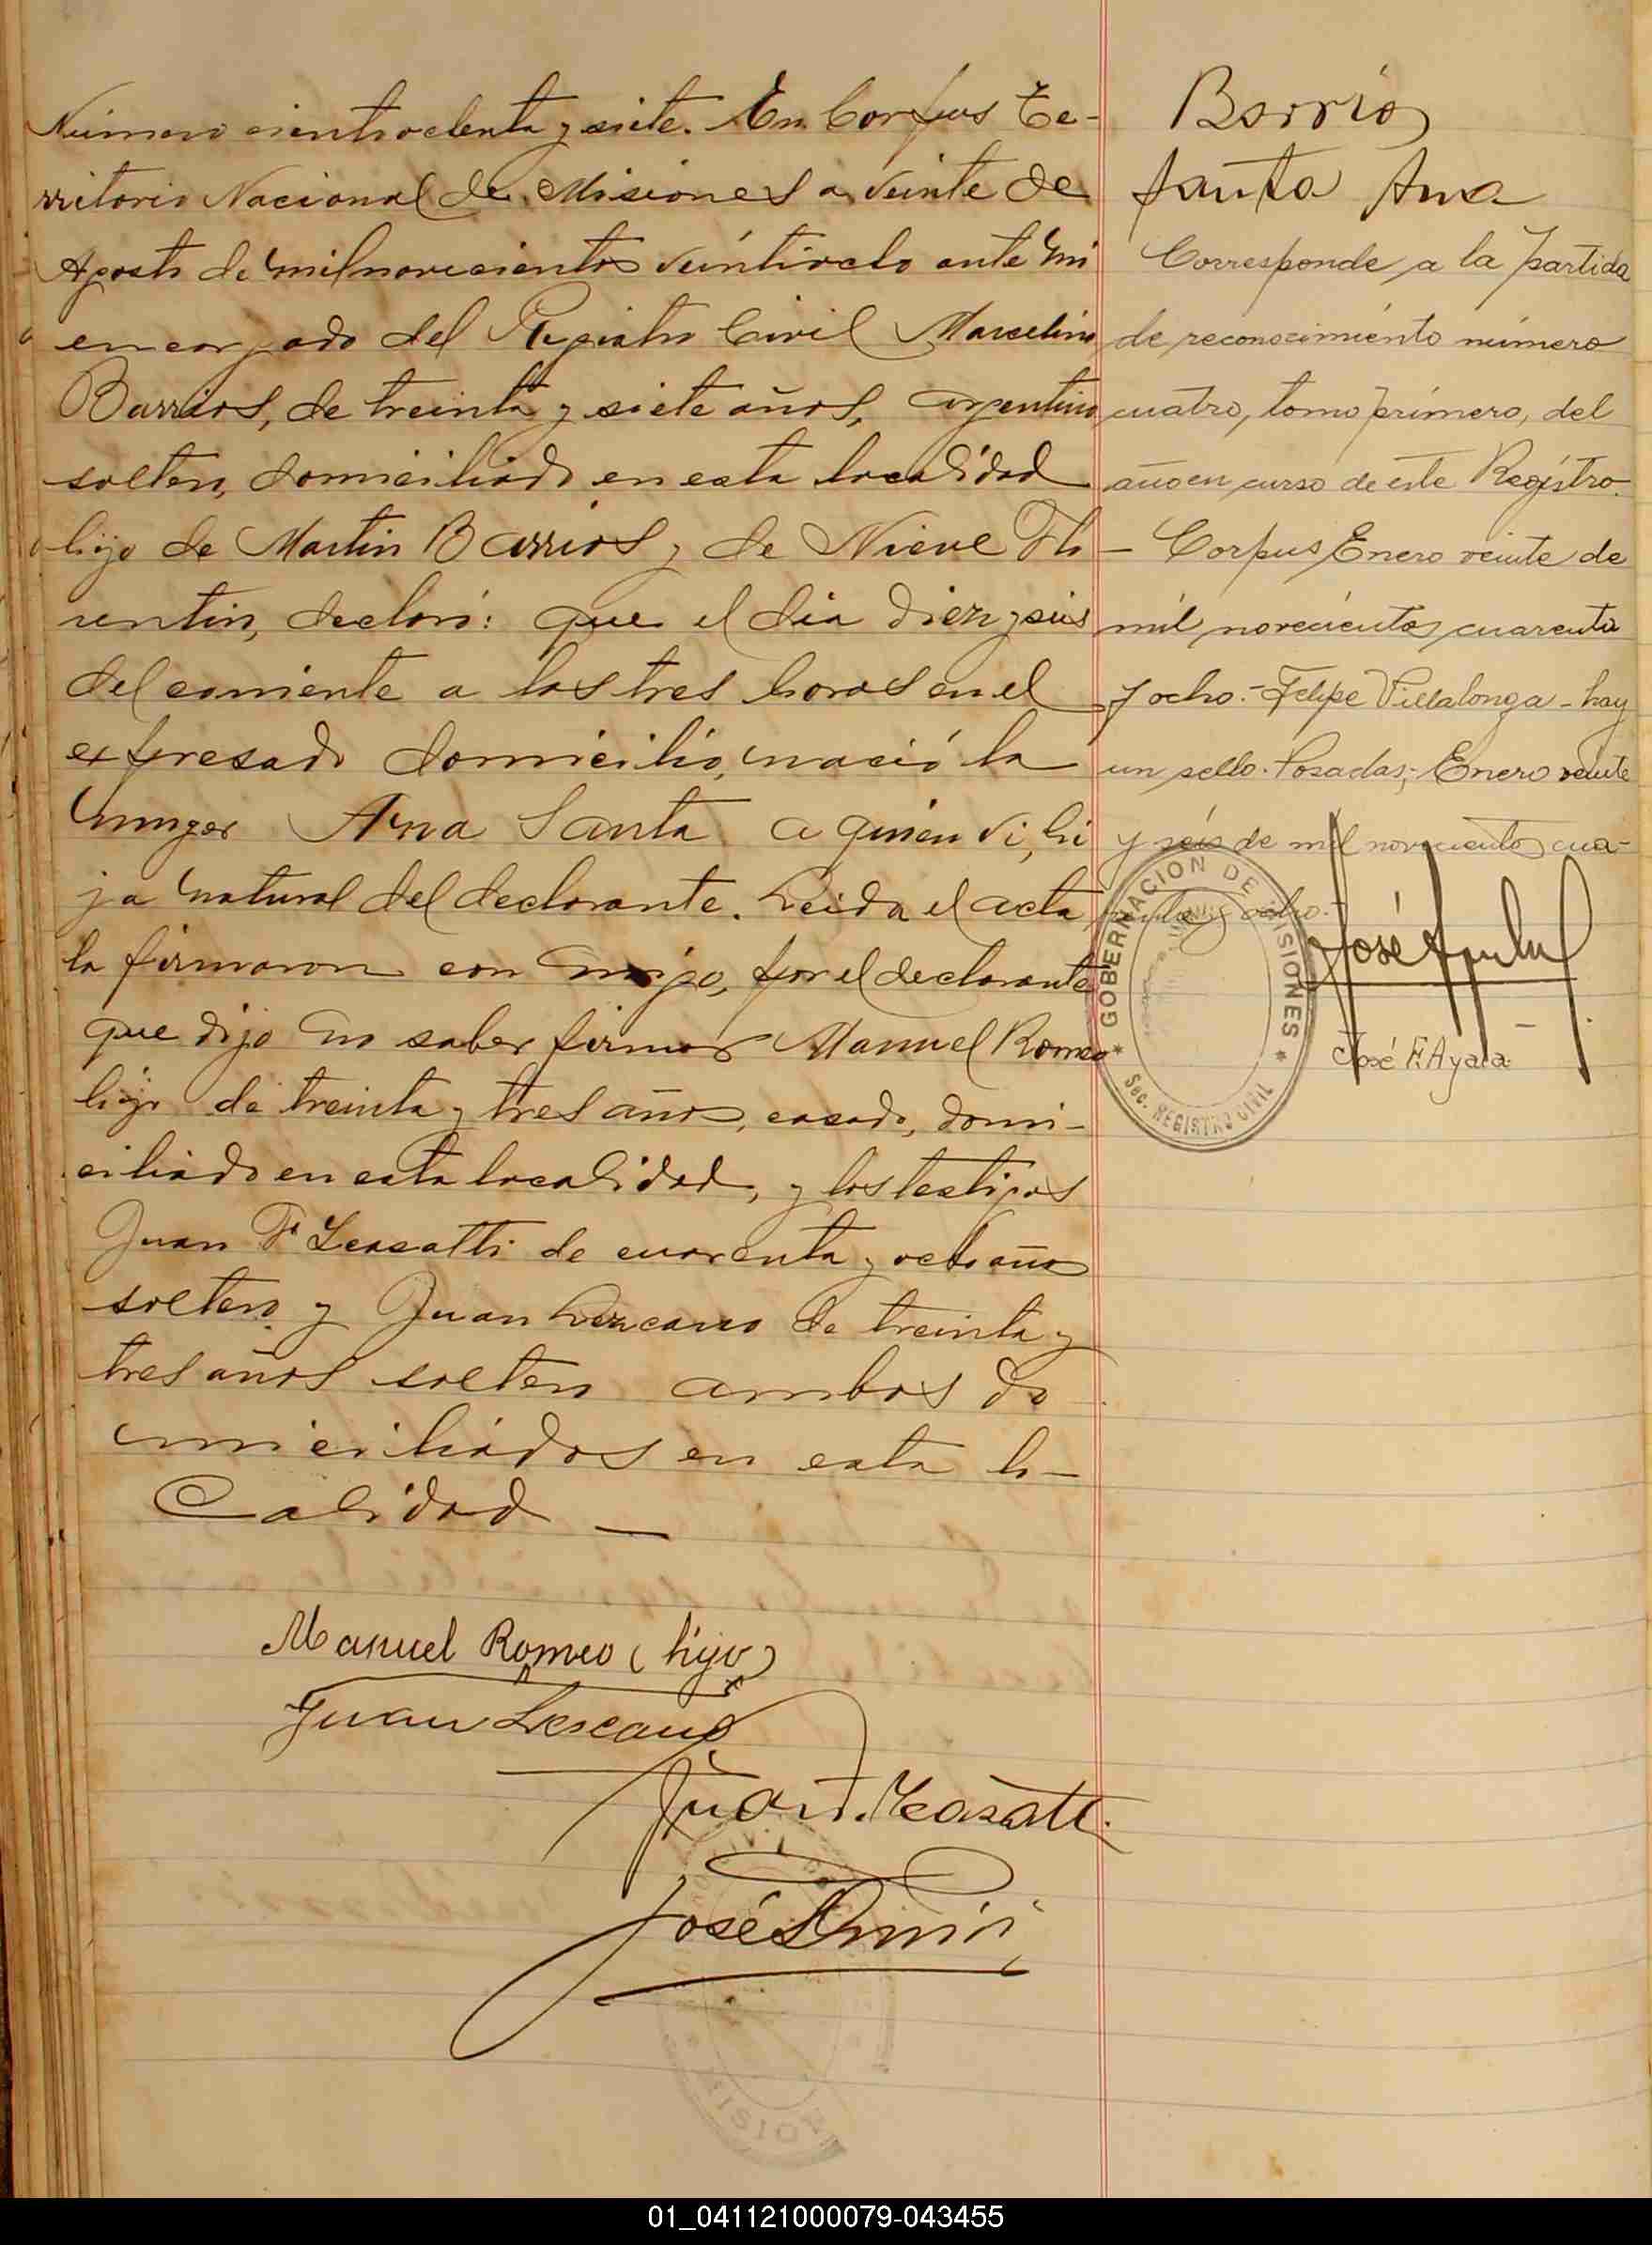 Número cientoochenta y siete. En Corpus Te-
rritorio Nacional de Misiones a veinte de
Agosto de milnovecientos veintiocho ante mi
encargado del Registro Civil Marcelino
Barrios, de treinta y siete años, argentino
soltero, domiciliado en esta localidad
hijo de Martin Barrios y de Nieve Flo
rentin, declaró: que el dia diez y seis
del corriente a las tres horas en el
expresado domicilio, nació la
munger Ana Santa a quien vi, hi
ja natural del declarante. Leida el acta
la firmaron con migo, por el declarante
que dijo no saber firmar Manuel Romeo
hijo de treinta y tres años, casado, domi-
ciliado en esta localidad, y los testigos
Juan F de cuarenta y ocho años
soltero y Juan Lezcano de treinta y
tres años soltero ambos do
miciliados en esta lo-
calidad —
Manuel Romeo (hijo)
Juan Lescano
José
Barrios
Santa Ana
Corresponde a la partida
de reconocimiento número
cuatro, tomo primero, del
año en curso de este Registro.
- Corpus Enero veinte de
mil novecientos cuarenta
y ocho.- Felipe Villalonga - hay
un sello. Posadas, Enero veinte
y seis de mil novecientos cua-
renta y ocho.-
GOBERNACION DE MISIONES
Sec. REGISTRO CIVIL
José F. Ayala
01_041121000079-043455